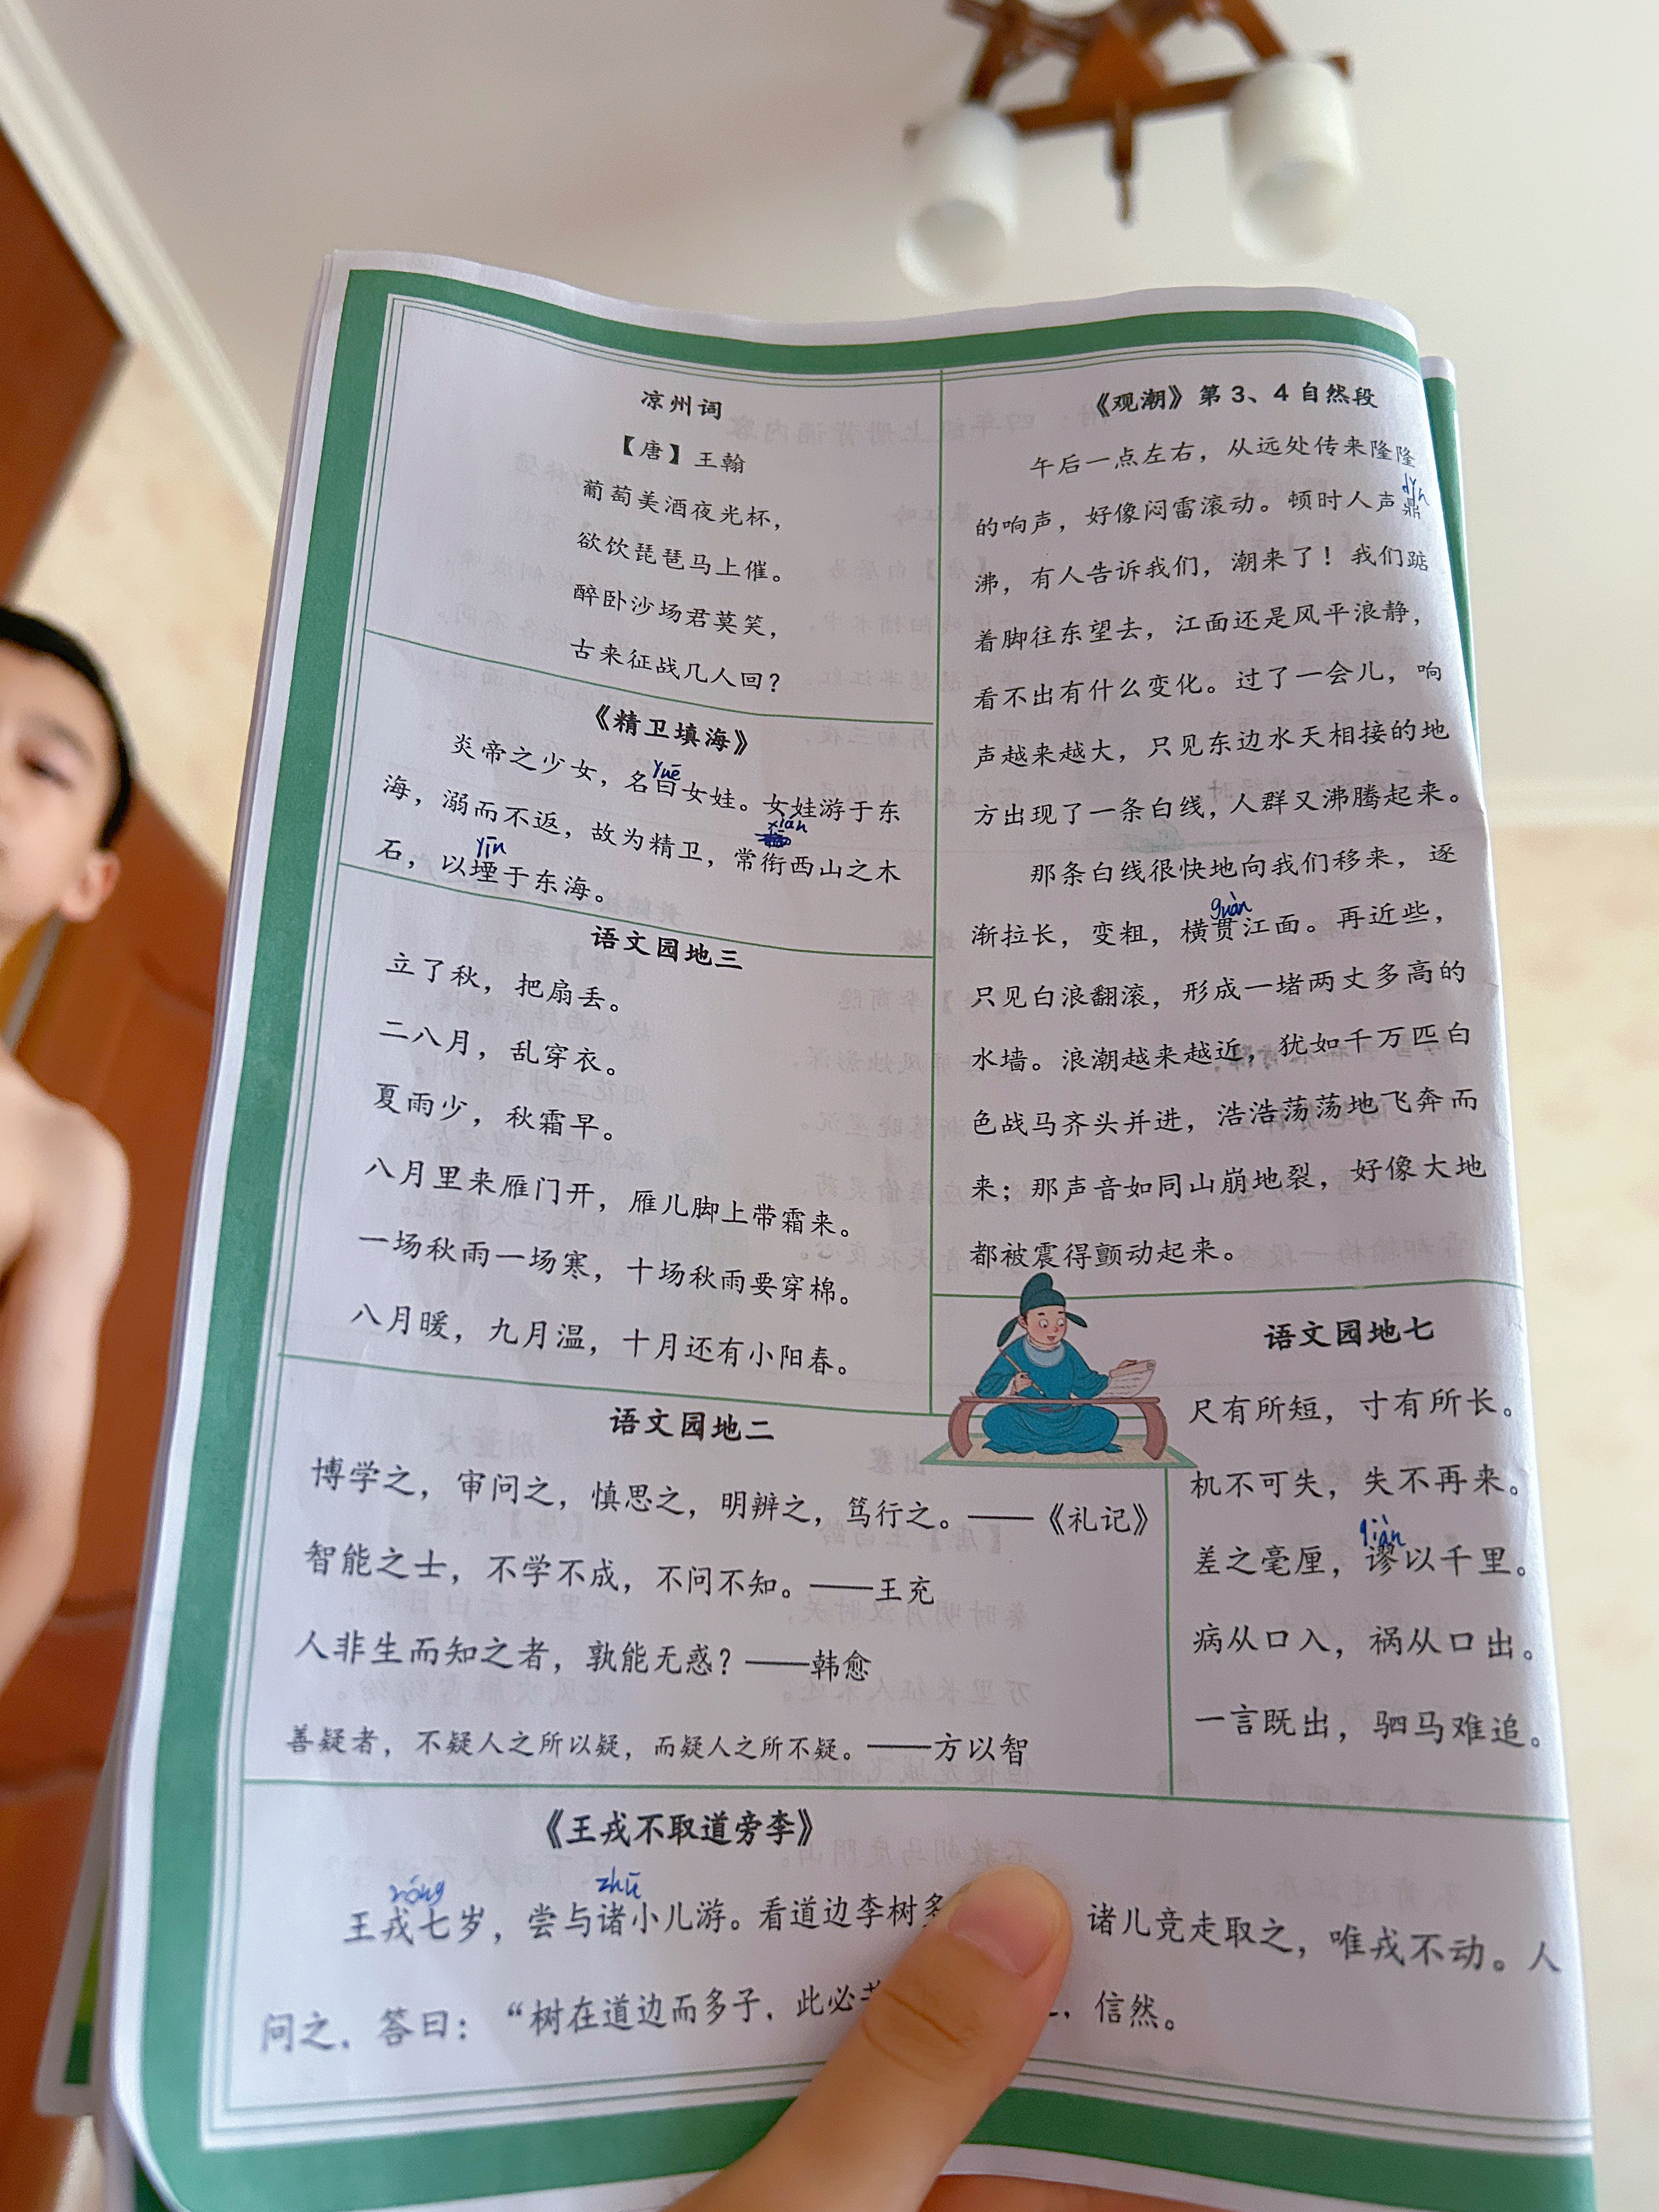 凉州词
【唐】王翰
葡萄美酒夜光杯，
欲饮琵琶马上催。
醉卧沙场君莫笑，
古来征战几人回？
《精卫填海》
yuē
炎帝之少女，名曰女娃。女娃游于东
xián
海，溺而不返，故为精卫，常衔西山之木
yīn
石，以堙于东海。
语文园地三
立了秋，把扇丢。
二八月，乱穿衣。
夏雨少，秋霜早。
八月里来雁门开，雁儿脚上带霜来。
一场秋雨一场寒，十场秋雨要穿棉。
八月暖，九月温，十月还有小阳春。
《观潮》第 3、4 自然段
午后一点左右，从远处传来隆隆
dǐn
的响声，好像闷雷滚动。顿时人声鼎
沸，有人告诉我们，潮来了！我们踮
着脚往东望去，江面还是风平浪静，
看不出有什么变化。过了一会儿，响
声越来越大，只见东边水天相接的地
方出现了一条白线，人群又沸腾起来。
那条白线很快地向我们移来，逐
guàn
渐拉长，变粗，横贯江面。再近些，
只见白浪翻滚，形成一堵两丈多高的
水墙。浪潮越来越近，犹如千万匹白
色战马齐头并进，浩浩荡荡地飞奔而
来；那声音如同山崩地裂，好像大地
都被震得颤动起来。
语文园地二
博学之，审问之，慎思之，明辨之，笃行之。——《礼记》
智能之士，不学不成，不问不知。——王充
人非生而知之者，孰能无惑？——韩愈
善疑者，不疑人之所以疑，而疑人之所不疑。——方以智
语文园地七
尺有所短，寸有所长。
机不可失，失不再来。
差之毫厘，谬以千里。
病从口入，祸从口出。
一言既出，驷马难追。
《王戎不取道旁李》
róng zhū
王戎七岁，尝与诸小儿游。看道边李树多 诸儿竞走取之，唯戎不动。人
问之，答曰：“树在道边而多子，此必 ，信然。